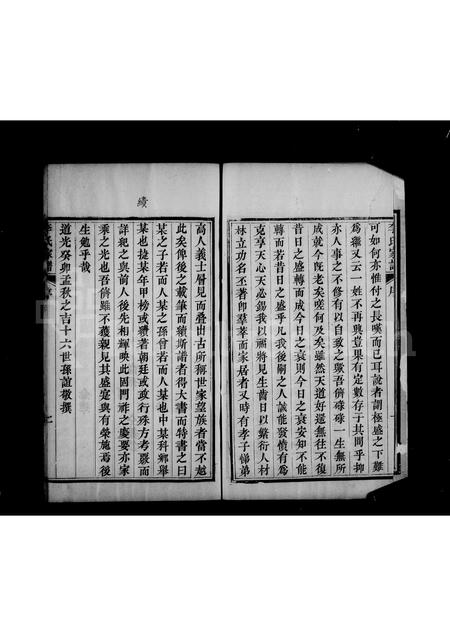 可如何亦惟付之長嘆而已耳說者謂極盛之下難
為繼又云一姓不再興豈果有定數存于其間乎抑
亦人事之不修有以自致之歟吾儕碌碌一生無所
成就今既老矣嗟何及矣雖然天道好還無往不復
昔日之盛轉而成今日之衰則今日之衰安知不能
轉而若昔日之盛乎凡我後嗣之人誠能發憤有為
克享天心天必錫我以福將見生齒日以繁衍人材
林立功名丕著即羣萃而家居者又時有孝子悌弟
高人義士層見而疊出古所稱世家望族者當不越
此矣俾後之載筆而續斯譜者得大書而特書之曰
某之子若而人某之孫曾若而人某也中某科鄉舉
某也捷某年甲榜或績著朝廷或政行殊方考覈而
詳紀之與前人後先相輝映此固門祚之慶要亦家
乘之光也吾儕雖不獲親見其盛寔與有榮施焉後
生勉乎哉
道光癸卯孟秋之吉十六世孫誼敬撰
續
李氏家譜
序
七